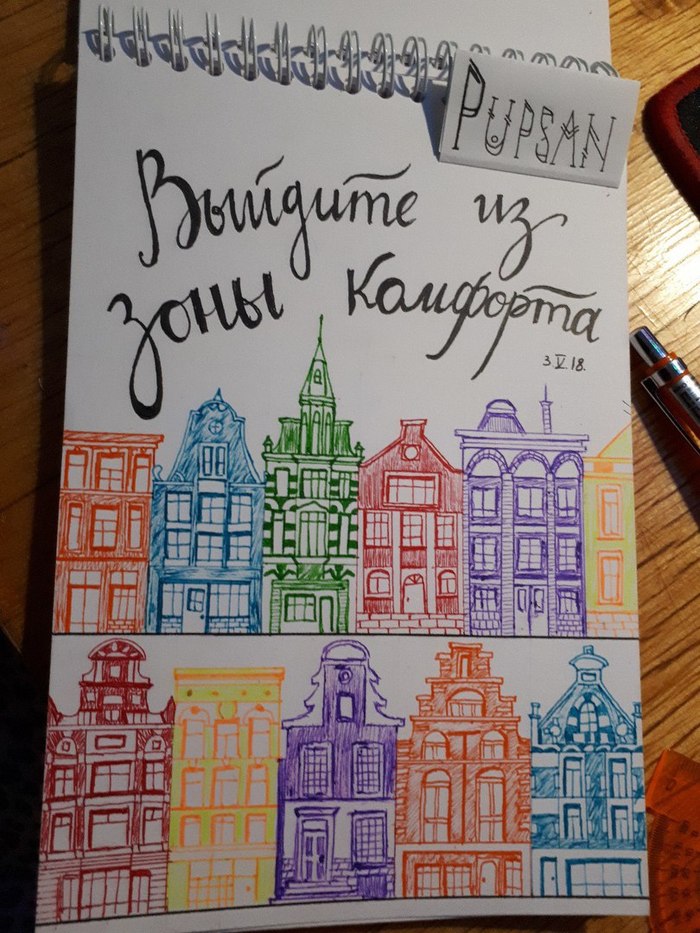 PUPSAN
Выйдите из
зоны комфорта
3 V. 18.